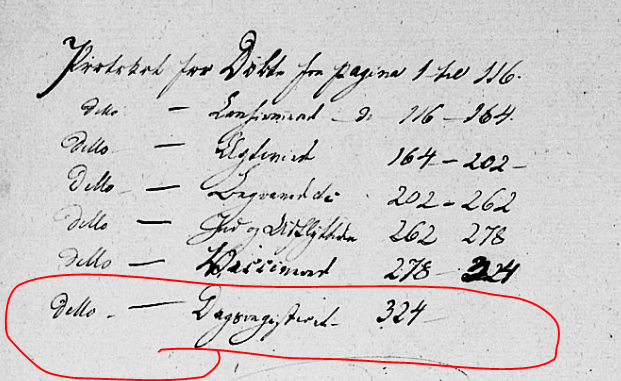 Protokol for Døbte fra pagina 1 til 116.
ditto — Confirmerede - do 116 - 164.
ditto — Egteviede 164 - 202 -
ditto — Begravede do 202 - 262
ditto — Ind og Udflyttede 262 278
ditto — Vaccinerede 278 - 324
ditto - — Dagsregisteret - 324 -